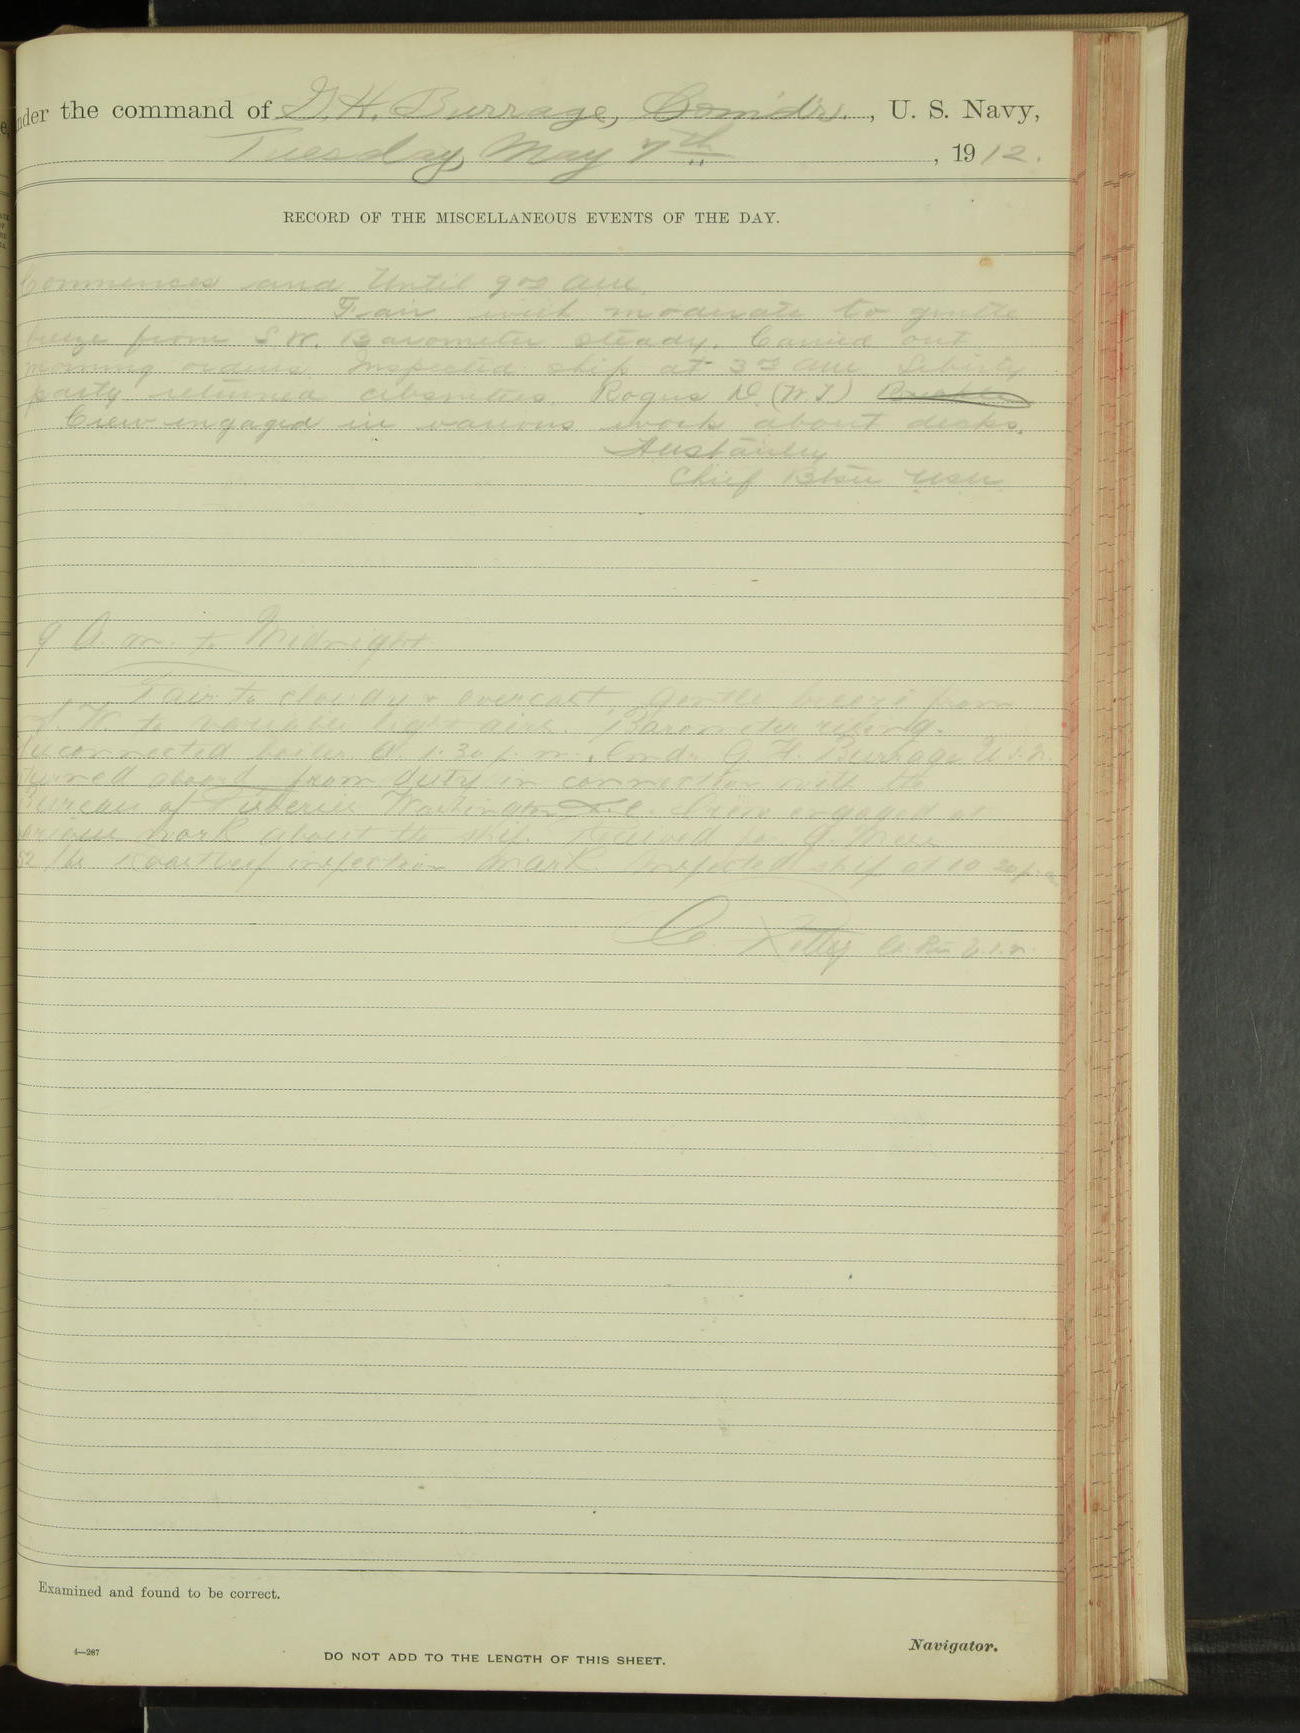 under the command of G. H. Burrage, Comdr., U. S. Navy,
Tuesday, May 7th, 1912.
RECORD OF THE MISCELLANEOUS EVENTS OF THE DAY.
Commences and Until 9 00 am.
Fair with moderate to gentle
breeze from S.W. Barometer steady. Carried out
morning orders. Inspected ship at 3 am. Liberty
party returned absentees Rogus D. (W.T.)
Crew engaged in various work about decks.
Chief Btsn USN
9 A. m. to Midnight
Fair to cloudy & overcast, gentle breeze from
S. W. to variable light airs. Barometer rising.
connected boiler A 1.30 p. m. Cmdr G. H. Burrage U.S.N.
aboard from duty in connection with the
Bureau of Fisheries Washington D.C. Crew engaged at
various work about the ship. Received from
52 lbs Roast beef inspection mark Inspected ship at 10 30 p.m.
C Petty
Examined and found to be correct.
Navigator.
4—267
DO NOT ADD TO THE LENGTH OF THIS SHEET.